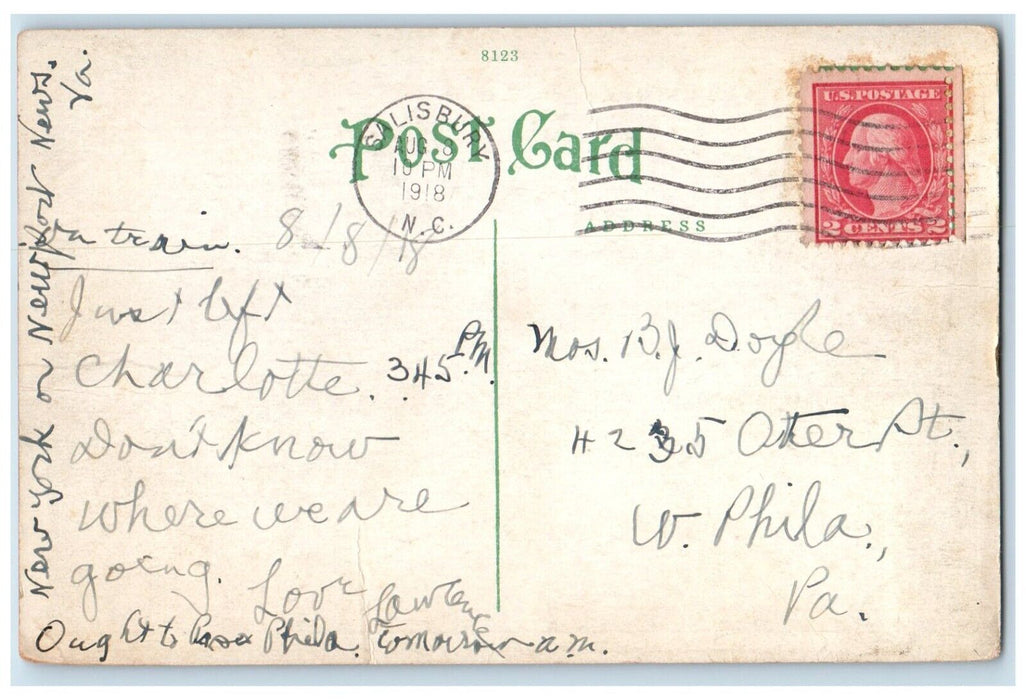 8123
Post Card
ADDRESS
SALISBURY
AUG.
10 PM
1918
N.C.
U.S.POSTAGE
2 CENTS 2
On train. 8/8/18
Just left
Charlotte. 345 P.M.
Don't know
where we are
going. Love
Lawrence
Ought to pass Phila. tomorrow a.m.
New York or Newport News.
Va.
Mrs. B.J. Doyle
4235 Otter St.,
W. Phila.,
Pa.